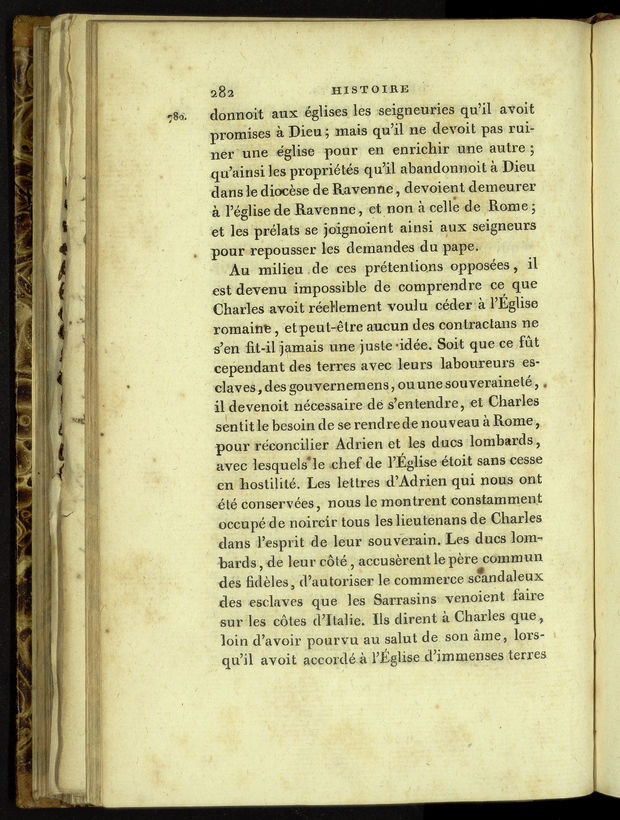 282 HISTOIRE
780. donnoit aux églises les seigneuries qu'il avoit
promises à Dieu ; mais qu'il ne devoit pas rui-
ner une église pour en enrichir une autre ;
qu'ainsi les propriétés qu'il abandonnoit à Dieu
dans le diocèse de Ravenne, devoient demeurer
à l'église de Ravenne, et non à celle de Rome ;
et les prélats se joignoient ainsi aux seigneurs
pour repousser les demandes du pape.
Au milieu de ces prétentions opposées, il
est devenu impossible de comprendre ce que
Charles avoit réellement voulu céder à l'Église
romaine, et peut-être aucun des contractans ne
s'en fit-il jamais une juste idée. Soit que ce fût
cependant des terres avec leurs laboureurs es-
claves, des gouvernemens, ou une souveraineté,
il devenoit nécessaire de s'entendre, et Charles
sentit le besoin de se rendre de nouveau à Rome,
pour réconcilier Adrien et les ducs lombards,
avec lesquels le chef de l'Église étoit sans cesse
en hostilité. Les lettres d'Adrien qui nous ont
été conservées, nous le montrent constamment
occupé de noircir tous les lieutenans de Charles
dans l'esprit de leur souverain. Les ducs lom-
bards, de leur côté, accusèrent le père commun
des fidèles, d'autoriser le commerce scandaleux
des esclaves que les Sarrasins venoient faire
sur les côtes d'Italie. Ils dirent à Charles que,
loin d'avoir pourvu au salut de son âme, lors-
qu'il avoit accordé à l'Église d'immenses terres